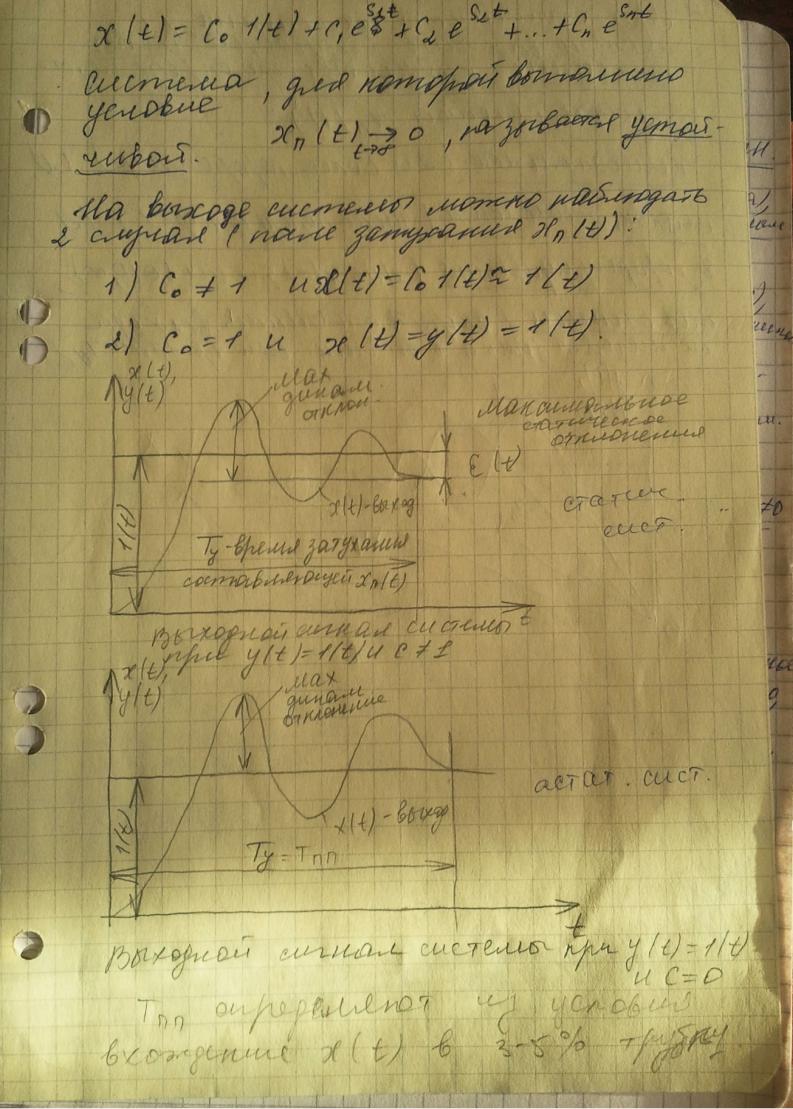 x(t) = C₀ 1(t) + C₁ e^{S₁t} + C₂ e^{S₂t} + ... + Cₙ e^{Sₙt}
система, для которой выполнено
условие
xₙ(t) → 0, называется устой-
t→∞
чивой.
На выходе системы можно наблюдать
2 случая (после затухания xₙ(t)):
1) C₀ ≠ 1 и x(t) = C₀ 1(t) ≈ 1(t)
2) C₀ = 1 и x(t) = y(t) = 1(t).
x(t),
y(t)
мах
динам.
отклон.
Максимальное
статическое
отклонения
ε(t)
1(t)
x(t)-выход
статич.
сист.
Ту-время затухания
составляющей xₙ(t)
t
Выходной сигнал системы
при y(t) = 1(t) и C ≠ 1
x(t),
y(t)
мах
динам
отклонение
астат. сист.
1(t)
x(t) - выход
Ту = Тпп
t
Выходной сигнал системы при y(t) = 1(t)
и C = 0
Тпп определяют из условия
вхождение x(t) в 3-5% трубку